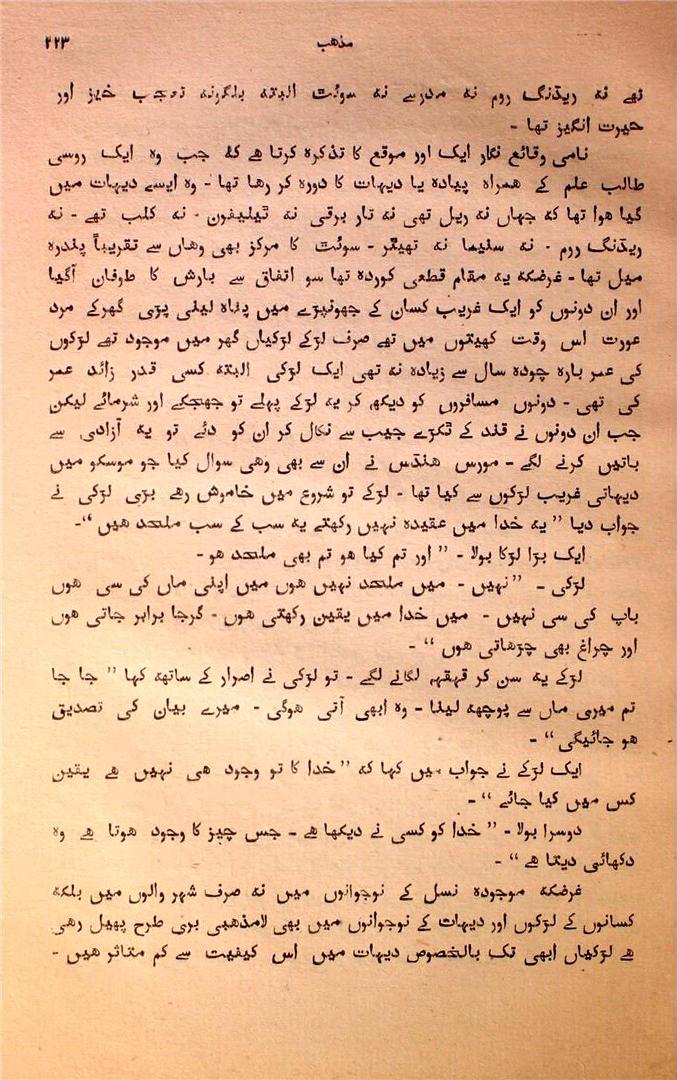 مذهب ۲۲۳
تھے نہ ریڈنگ روم نہ مدرسے نہ سوئت البتہ بلگونہ تعجب خیز اور
حیرت انگیز تھا -
نامی وقائع نگار ایک اور موقع کا تذکرہ کرتا ہے کہ جب وہ ایک روسی
طالب علم کے ہمراہ پیادہ پا دیہات کا دورہ کر رہا تھا - وہ ایسے دیہات میں
گیا ہوا تھا کہ جہاں نہ ریل تھی نہ تار برقی نہ ٹیلیفون - نہ کلب تھے - نہ
ریڈنگ روم - نہ سنیما نہ تھیٹر - سوئت کا مرکز بھی وہاں سے تقریباً پندرہ
میل تھا - غرضکہ یہ مقام قطعی کوردہ تھا سو اتفاق سے بارش کا طوفان آگیا
اور ان دونوں کو ایک غریب کسان کے جھونپڑے میں پناہ لینی پڑی گھرکے مرد
عورت اس وقت کھیتوں میں تھے صرف لڑکے لڑکیاں گھر میں موجود تھے لڑکوں
کی عمر بارہ چودہ سال سے زیادہ نہ تھی ایک لڑکی البتہ کسی قدر زائد عمر
کی تھی - دونوں مسافروں کو دیکھ کر یہ لڑکے پہلے تو جھجکے اور شرمائے لیکن
جب ان دونوں نے قند کے ٹکڑے جیب سے نکال کر ان کو دئے تو یہ آزادی سے
باتیں کرنے لگے - مورس ہنڈس نے ان سے بھی وہی سوال کیا جو موسکو میں
دیہاتی غریب لڑکوں سے کیا تھا - لڑکے تو شروع میں خاموش رہے بڑی لڑکی نے
جواب دیا ”یہ خدا میں عقیدہ نہیں رکھتے یہ سب کے سب ملحد ہیں“-
ایک بڑا لڑکا بولا - ”اور تم کیا ہو تم بھی ملحد ہو -
لڑکی - ”نہیں - میں ملحد نہیں ہوں میں اپنی ماں کی سی ہوں
باپ کی سی نہیں - میں خدا میں یقین رکھتی ہوں - گرجا برابر جاتی ہوں
اور چراغ بھی چڑھاتی ہوں“ -
لڑکے یہ سن کر قہقہہ لگانے لگے - تو لڑکی نے اصرار کے ساتھ کہا ”جا جا
تم میری ماں سے پوچھ لینا - وہ ابھی آتی ہوگی - میرے بیان کی تصدیق
ہو جائیگی“ -
ایک لڑکے نے جواب میں کہا کہ ”خدا کا تو وجود ہی نہیں ہے یقین
کس میں کیا جائے“ -
دوسرا بولا - ”خدا کو کسی نے دیکھا ہے - جس چیز کا وجود ہوتا ہے وہ
دکھائی دیتا ہے“ -
غرضکہ موجودہ نسل کے نوجوانوں میں نہ صرف شہر والوں میں بلکہ
کسانوں کے لڑکوں اور دیہات کے نوجوانوں میں بھی لامذہبی بری طرح پھیل رہی
ہے لڑکیاں ابھی تک بالخصوص دیہات میں اس کیفیت سے کم متاثر ہیں -